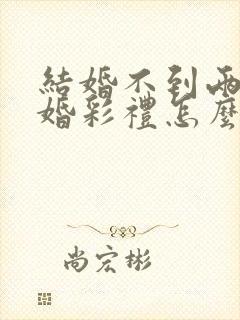 結婚不到兩
婚彩禮怎麼
尚宏彬